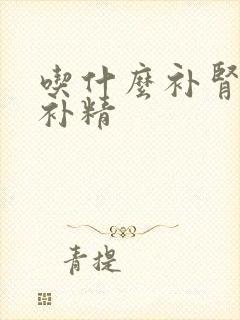 喫什麼补腎
补精
青提